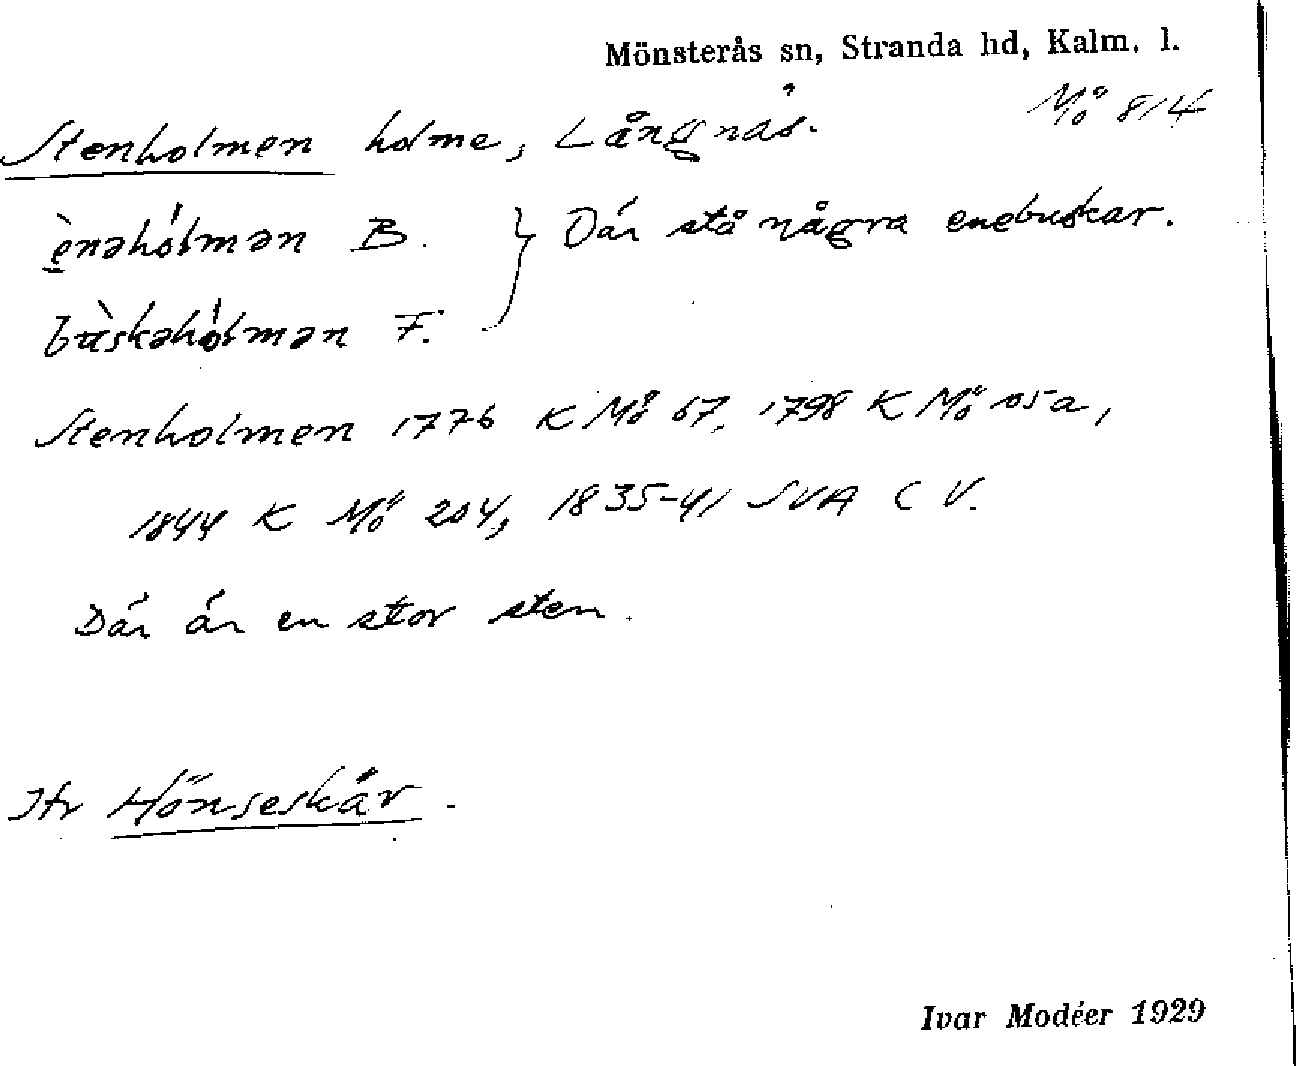 Mönsterås sn, Stranda hd, Kalm. l.
Mö 814
Stenholmen holme, Långnäs.
ènəhólmən B. } Där stå några enebuskar.
bùskəhólmən F.
Stenholmen 1776 K Mö 67, 1798 K Mö 105a,
1844 K Mö 204, 1835-41 SVA C V.
Där är en stor sten.
Jfr Hönseskär.
Ivar Modéer 1929